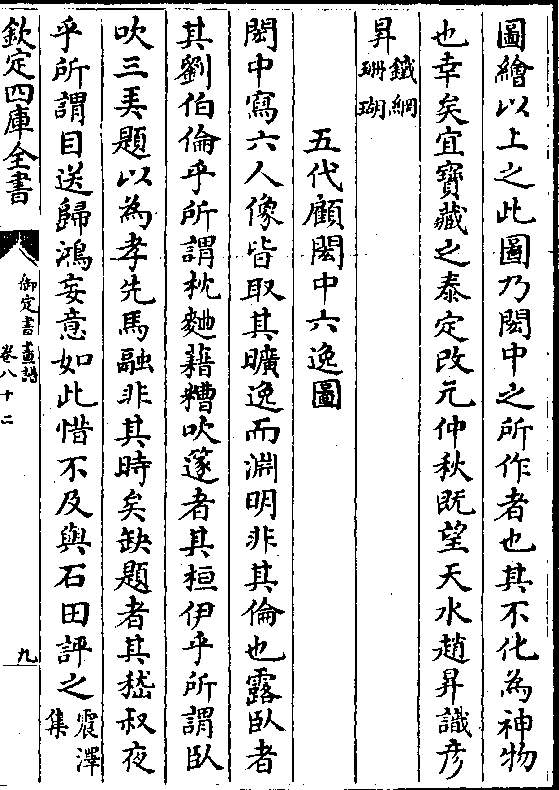 圖繪以上之此圖乃閎中之所作者也其不化為神物
也幸矣宜寶藏之泰定改元仲秋既望天水趙昇識彦
昇鐵網珊瑚
五代顧閎中六逸圖
閎中寫六人像皆取其曠逸而淵明非其倫也露臥者
其劉伯倫乎所謂枕麯藉糟吹篴者其桓伊乎所謂臥
吹三弄題以為孝先馬融非其時矣缺題者其嵇叔夜
乎所謂目送歸鴻妄意如此惜不及與石田評之震澤集
欽定四庫全書
御定書畫譜
卷八十二
九